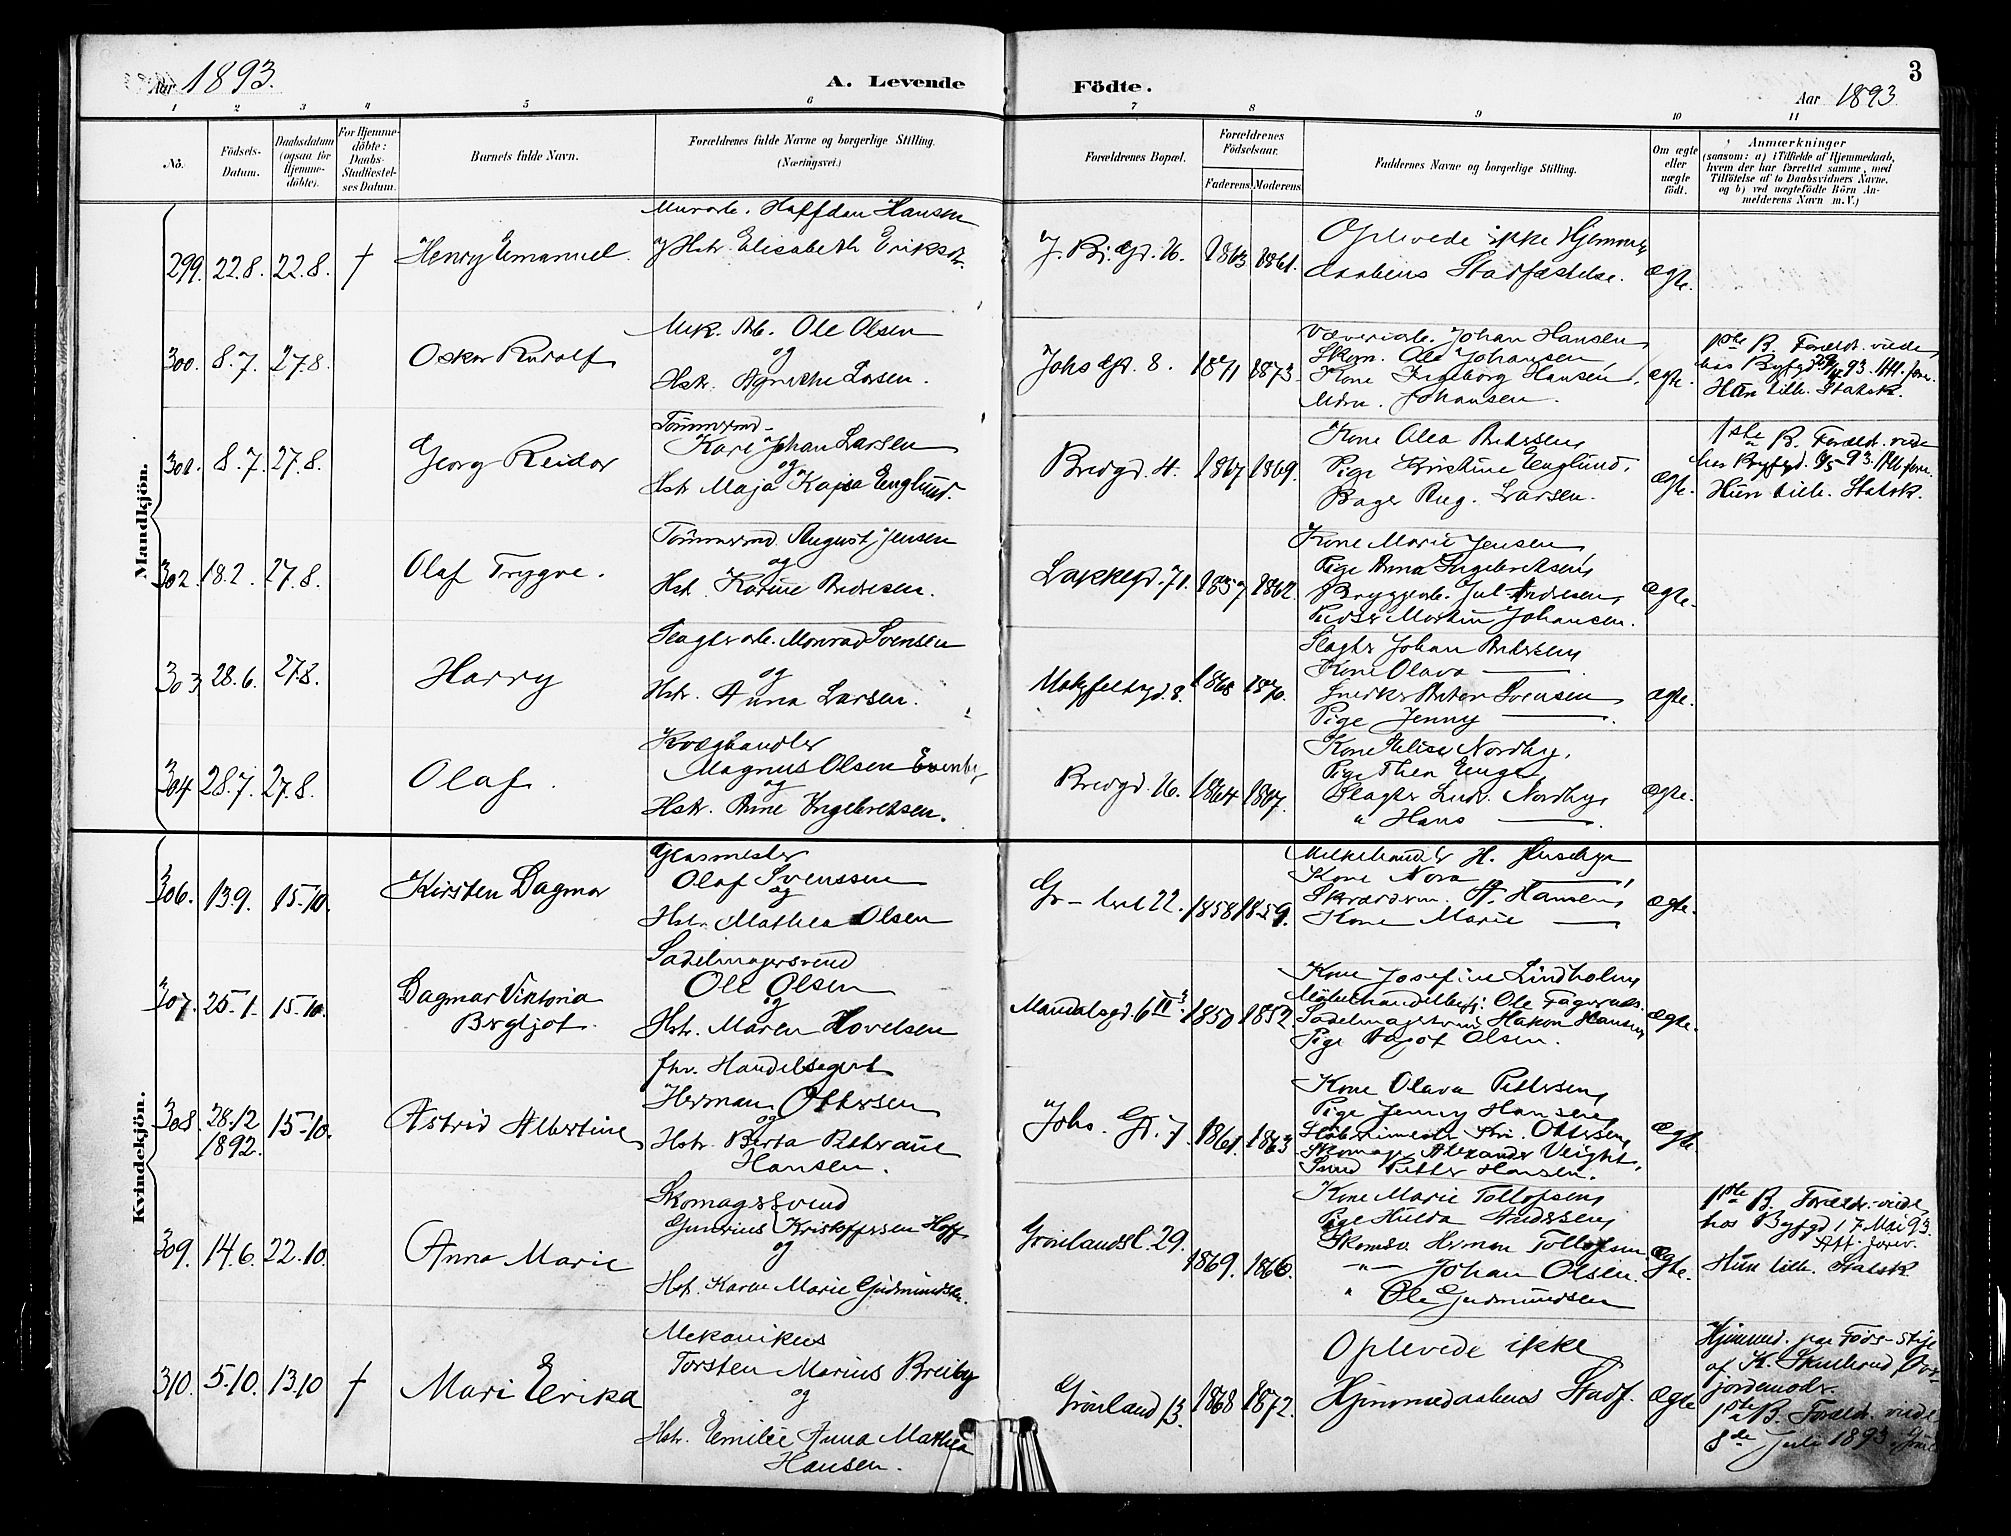 Aar 1893.
A. Levende
Födte.
Aar 1893
3
1 2 3 4 5 6 7 8 9 10 11
No.
Födsels-
Datum.
Daabsdatum
(ogsaa for
Hjemme-
döbte).
For Hjemme-
döbte:
Daabs-
Stadfæstel-
ses Datum.
Barnets fulde Navn.
Forældrenes fulde Navne og borgerlige Stilling.
(Næringsvei.)
Forældrenes Bopæl.
Forældrenes
Födselsaar.
Faderens. Moderens.
Faddernes Navne og borgerlige Stilling.
Om ægte
eller
uægte
födt.
Anmærkninger
(saasom: a) i Tilfælde af Hjemmedaab,
hvem der har forrettet samme, med
Tilföielse af to Daabsvidners Navne,
og b) ved uægtefödte Börn An-
melderens Navn m. V.)
Mandkjön.
299. 22.8. 22.8. †
Henry Emanuel
Murarb. Halfdan Hansen
og Hstr. Elisabeth Eriksdr.
1863 1861.
Oplevede ikke Hjemme-
daabens Stadfæstelse.
ægte.
300. 8.7. 27.8.
Oskar Rudolf
Mek. Arb. Ole Olsen
og
Hstr. Agnethe Larsen.
Johs gd. 8. 1871 1873.
Væveriarb. Johan Hansen,
Skom. Ole Johansen,
Kone Ingeborg Hansen,
Johansen.
ægte.
1ste B. Forældr. viede
hos Byfgd. 93.
Hun tilh. Statsk.
301. 8.7. 27.8.
Georg Reidar
Tömmermd.
Karl Johan Larsen
og
Hstr Maja Kajsa Englund.
Bredgd. 4. 1867 1869.
Kone Olea Andersen,
Pige Kristine Englund,
Bager Aug. Larsen.
ægte.
1ste B. Forældr. viede
hos Byfgd. 93.
Hun tilh. Statsk.
302. 18.2. 27.8.
Olaf Trygve.
Tömmermd. August Jensen
og
Hst. Karine Andresen.
Lakkegd. 71. 1857 1862.
Kone Marie Jensen,
Pige Anna Ingebretsen,
Bryggearb. Jul. Andresen,
Martin Johansen.
ægte.
303 28.6. 27.8.
Harry
Slagterarb. Monrad Svensen
og
Hstr. Anna Larsen.
1868 1870.
Slagter Johan Andersen,
Kone Olava —
Snedker Anton Svensen
Pige Jenny —.
ægte.
304 28.7. 27.8.
Olaf.
Kvæghandler
Magnus Olsen
og
Hstr. Anne Ingebretsen.
Bredgd. 26. 1864 1867.
Kone Elise Nordby,
Pige Thea Enger
Slagter Ludv. Nordby,
" Hans —.
ægte.
Kvindekjön.
306. 13.9. 15.10.
Kirsten Dagmar
Glasmester
Olaf Svenssen
og
Hstr. Mathea Olsen
22. 1858 1859.
Melkehandler H. Huseby,
Kone Nora —,
Skræderm. A. Hansen,
Kone Marie —
ægte.
307. 25.1. 15.10.
Dagmar Viktoria
Bergljot.
Sadelmagersvend
Ole Olsen
og
Hstr. Maren Hovelsen
Mandalsgd. 6 II 1850 1852.
Kone Josefine Lindholm,
Ole
Sadelmagersvend Hakon Hansen,
Pige Olsen.
ægte.
308. 28.12
1892. 15.10.
Astrid Albertine
fhv. Handelsagent
Herman Ottersen
og
Hstr. Berta Petraue
Hansen.
Johs. Gd. 7. 1861. 1863
Kone Olava Pettersen,
Pige Jenny Hansen,
Ottersen,
Skomag. Alexander
Petter Hansen.
ægte.
309. 14.6. 22.10.
Anna Marie
Skomagersvend
Gunerius Kristoffersen Hoff
og
Hst. Karen Marie Gudmundsen.
Grönlandsl. 29. 1869. 1866.
Kone Marie Tollofsen,
Pige Hulda Andersen,
Skomsv. Herman Tollofsen
—"— Johan Olsen.
" Ole Gudmundsen
ægte.
1ste B. Forældr. viede
hos Byfgd 17 Mai 93.
Hun tilh. Statsk
310. 5.10. 13.10 †
Mari Erika
Mekanikus
Torsten Marius Breiby
og
Hstr. Emilie Anna Mathea
Hansen.
Grönland 13. 1868 1872.
Oplevede ikke
Hjemmedaabens Stadf.
ægte
Hjemmed. paa Föds-stift.
af K. Skullerud
jordemoder.
1ste B. Forældr. viede
8de Juli 1893.